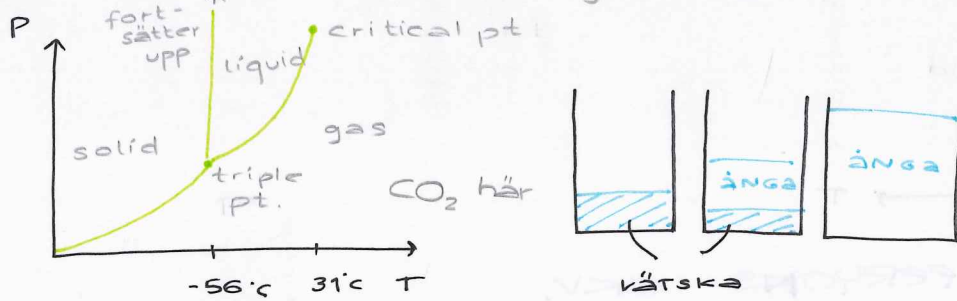 P
fort-
sätter
upp
liquid
critical pt
solid
gas
triple
pt.
CO₂ här
-56°C 31°C T
ÅNGA
ÅNGA
vätska